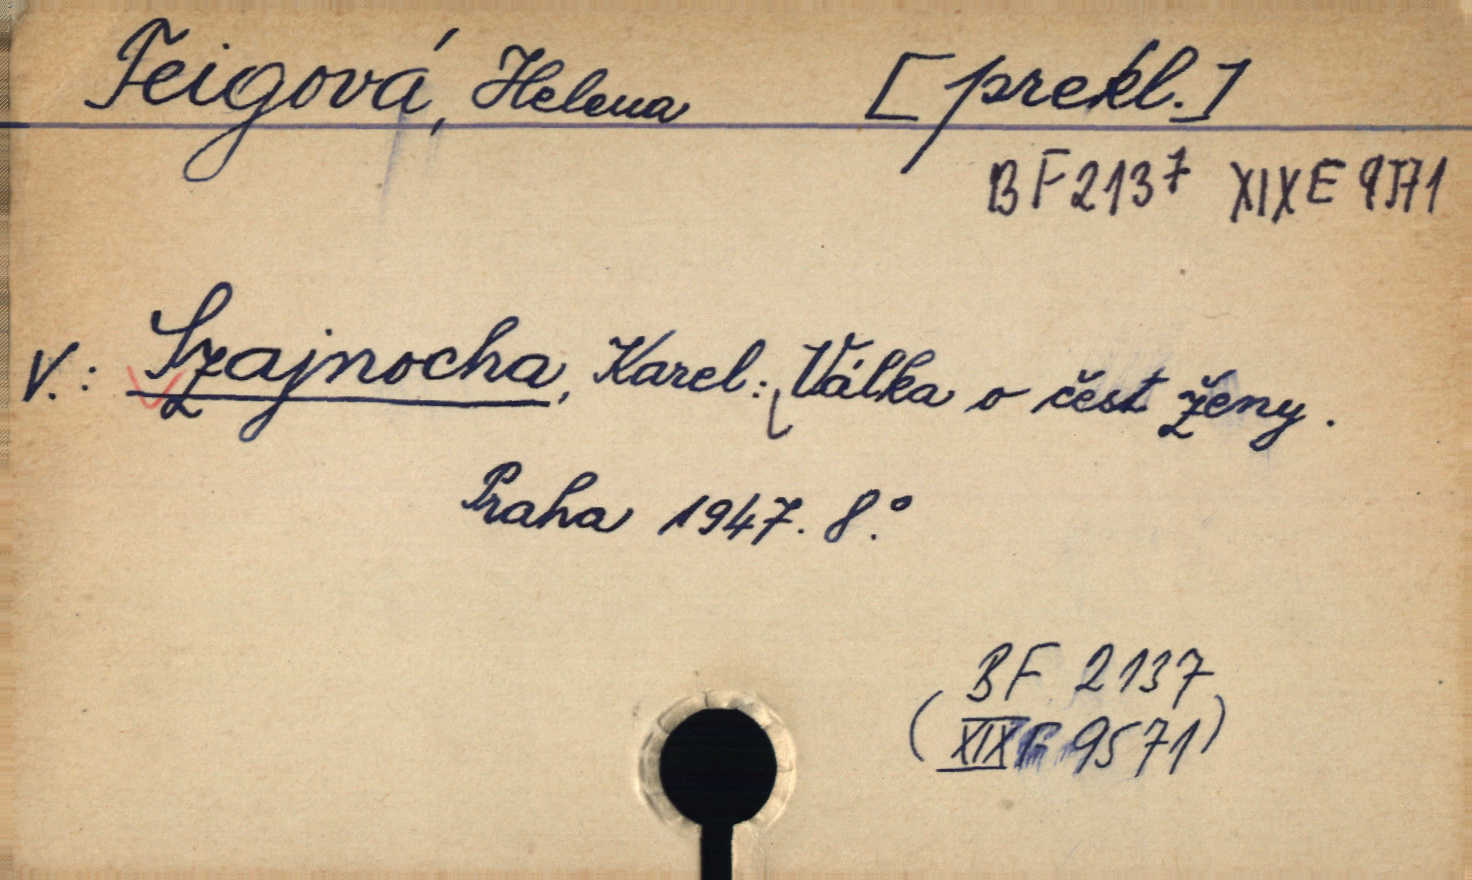 Teigová, Helena [prekl.]
BF 2137 XIX E 9571
V.: Szajnocha, Karel: Válka o čest ženy.
Praha 1947. 8.°
BF 2137
(XIX 9571)